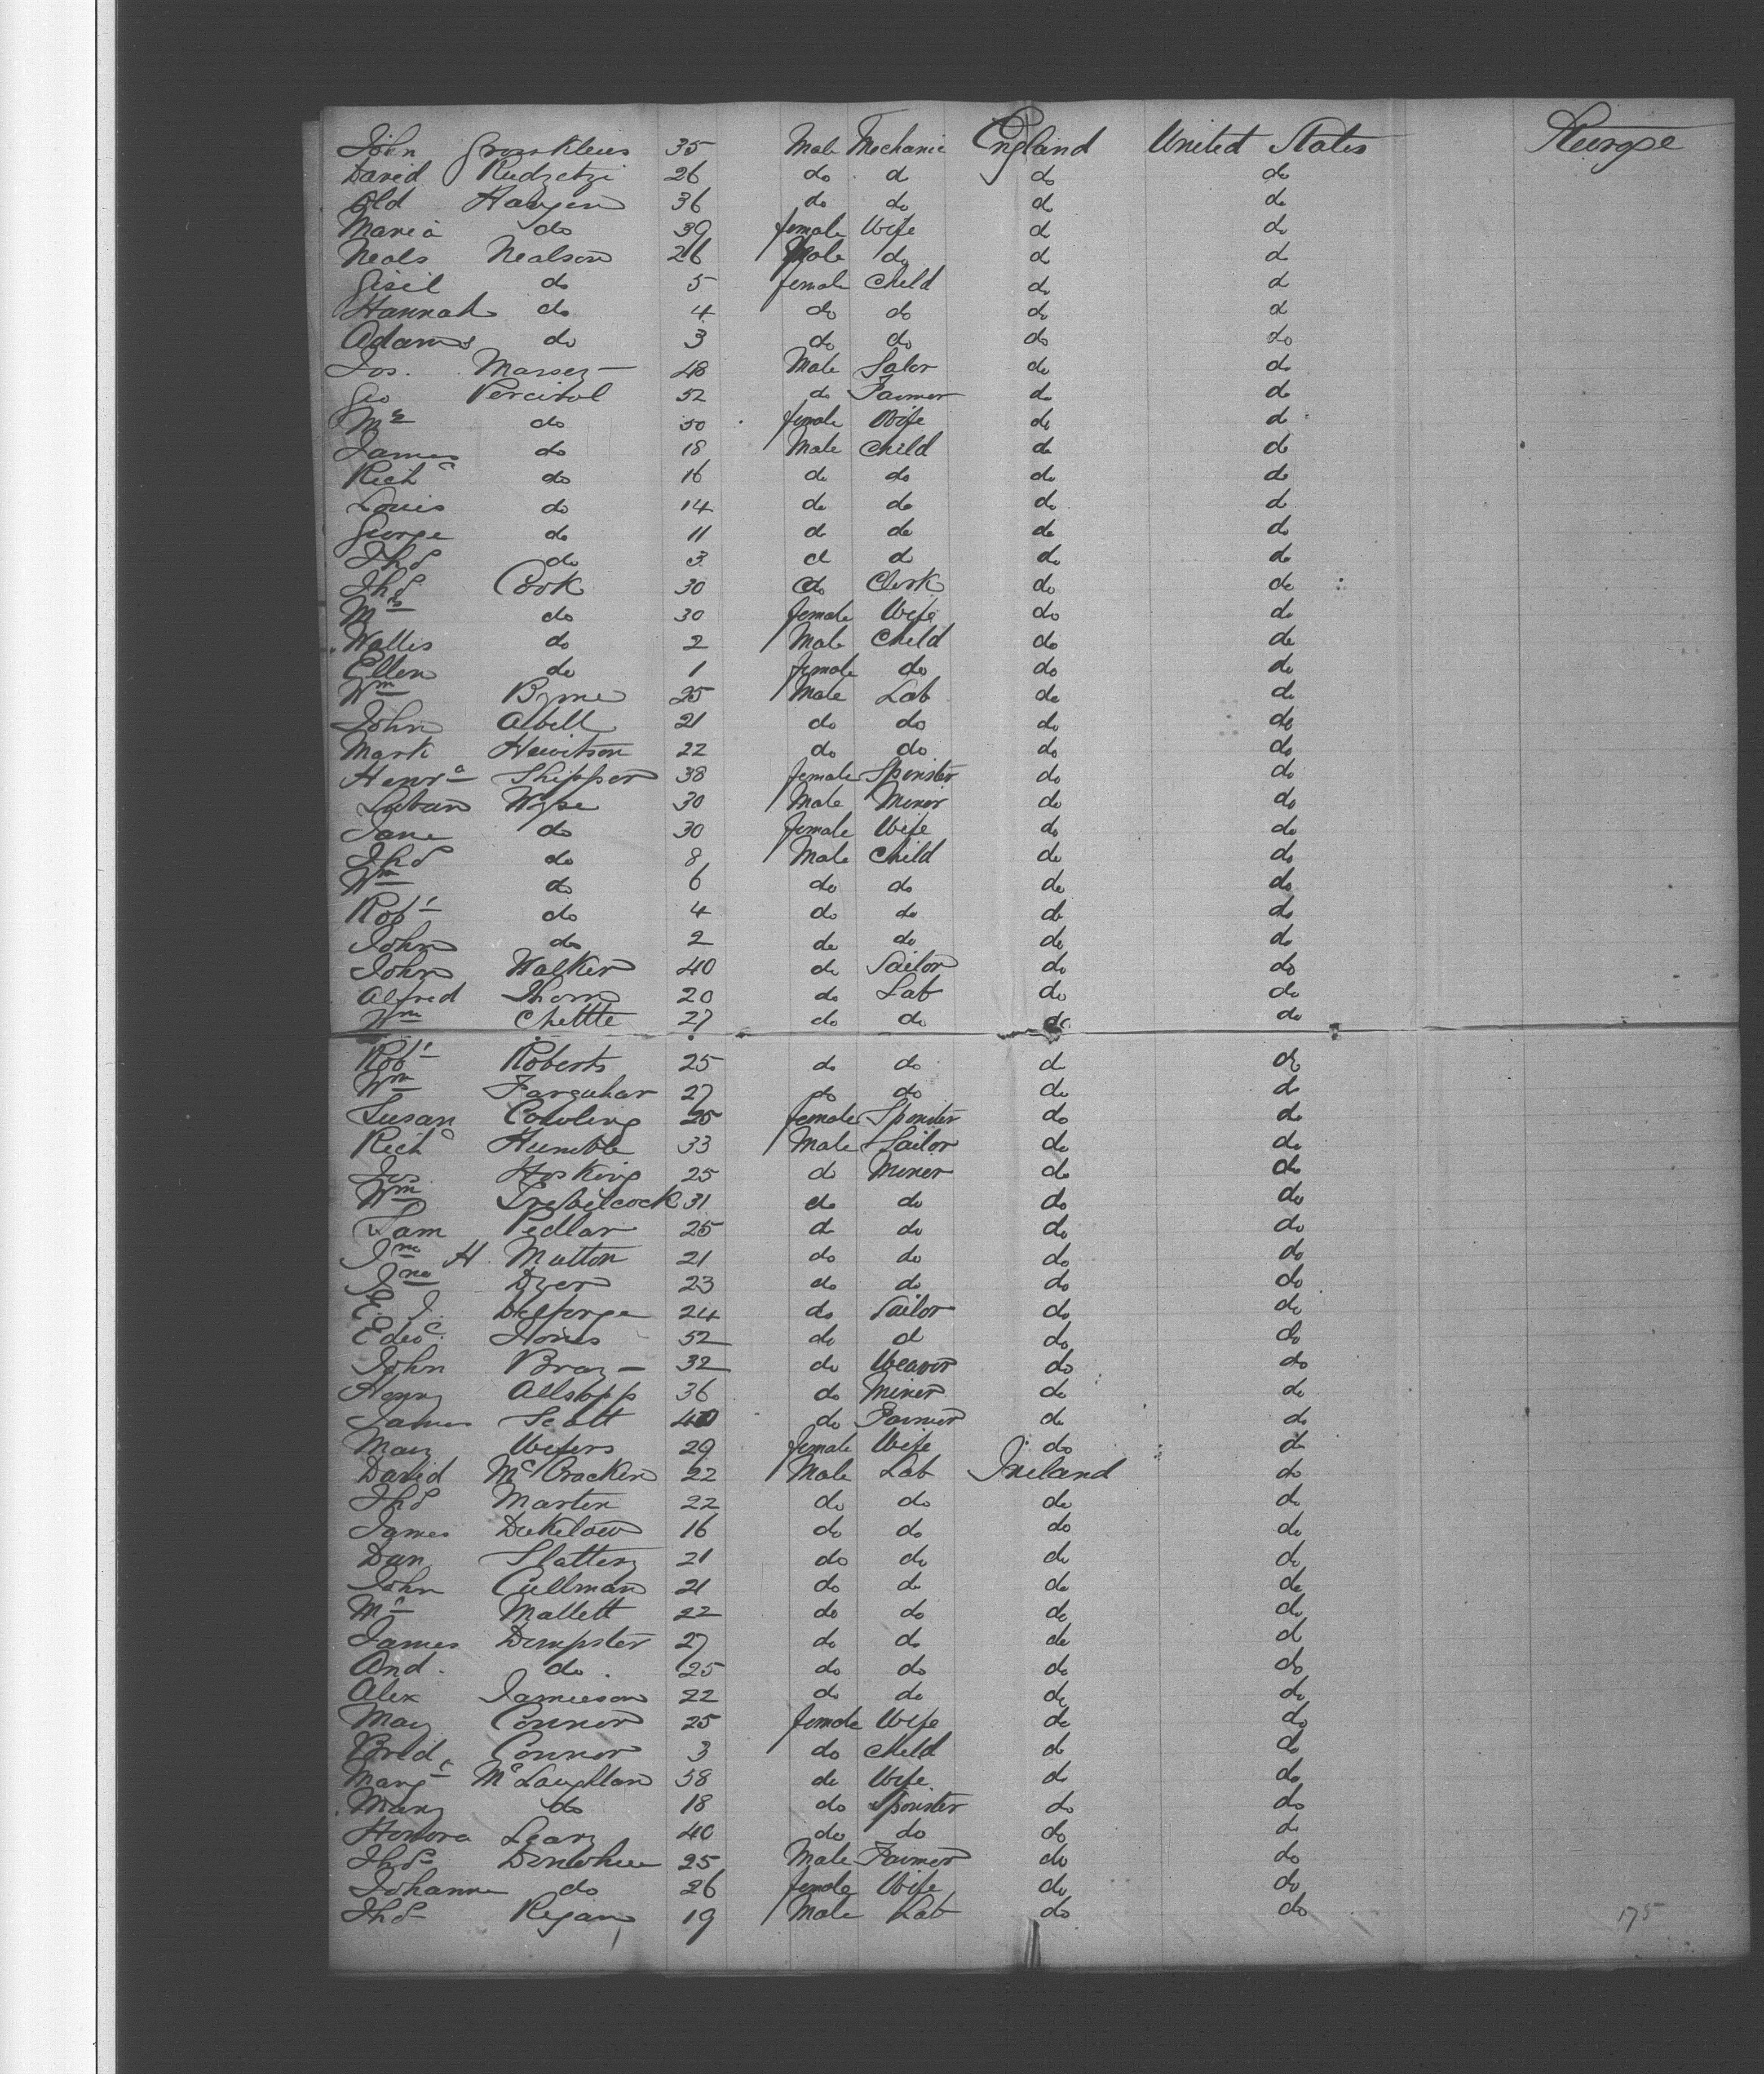 John Grosskleus 35 Male Mechanic England United States Steerage
David Rudzetzi 26 do do do do
Old Haugen 36 do do do do
Maria do 39 female Wife do do
Neals Nealson 26 Male do do do
Gisil do 5 female Child do do
Hannah do 4 do do do do
Adams do 3 do do do do
Jos. Massey 48 Male Salor do do
Geo Percival 52 do Farmer do do
Mrs do 50 female Wife do do
James do 18 Male Child do do
Richd do 16 do do do do
Louis do 14 do do do do
George do 11 do do do do
Thos do 3 do do do do
Thos Cook 30 do Clerk do do
Mrs do 30 female Wife do do
Wallis do 2 Male Child do do
Ellen do 1 female do do do
Wm Byrne 25 Male Lab do do
John Abell 21 do do do do
Mark Hewitson 22 do do do do
Henra Shipper 38 female Spinster do do
Laban Wyse 30 Male Miner do do
Jane do 30 female Wife do do
Thos do 8 Male Child do do
Wm do 6 do do do do
Robt do 4 do do do do
John do 2 do do do do
John Walker 40 do Sailor do do
Alfred Thorn 20 do Lab do do
Wm Chettte 27 do do do do
Robt Roberts 25 do do do do
Wm Farquhar 27 do do do do
Susan Cowling 25 female Spinster do do
Richd Humble 33 Male Sailor do do
Jos Hosking 25 do Miner do do
Wm Trebilcock 31 do do do do
Sam Pedlar 25 do do do do
Jno H. Mutton 21 do do do do
Jno Dyer 23 do do do do
E. J. Delforge 24 do Sailor do do
Edwd. Jones 52 do do do do
John Bray 32 do Weaver do do
Henry Allsopp 36 do Miner do do
James Scott 40 do Farmer do do
Mary Wefers 29 female Wife do do
David McCracken 22 Male Lab Ireland do
Thos Martin 22 do do do do
James Dukelow 16 do do do do
Dan Slattery 21 do do do do
John Cullman 21 do do do do
Mc Mallett 22 do do do do
James Dempster 27 do do do do
And. do. 25 do do do do
Alex Jamieson 22 do do do do
Mary Connor 25 female Wife do do
Brid Connor 3 do Child do do
Margt McLaughlan 58 do Wife do do
Mary do 18 do Spinster do do
Honora Leary 40 do do do do
Thos Donohue 25 Male Farmer do do
Johanna do 26 female Wife do do
Thos Regan 19 Male Lab do do
175